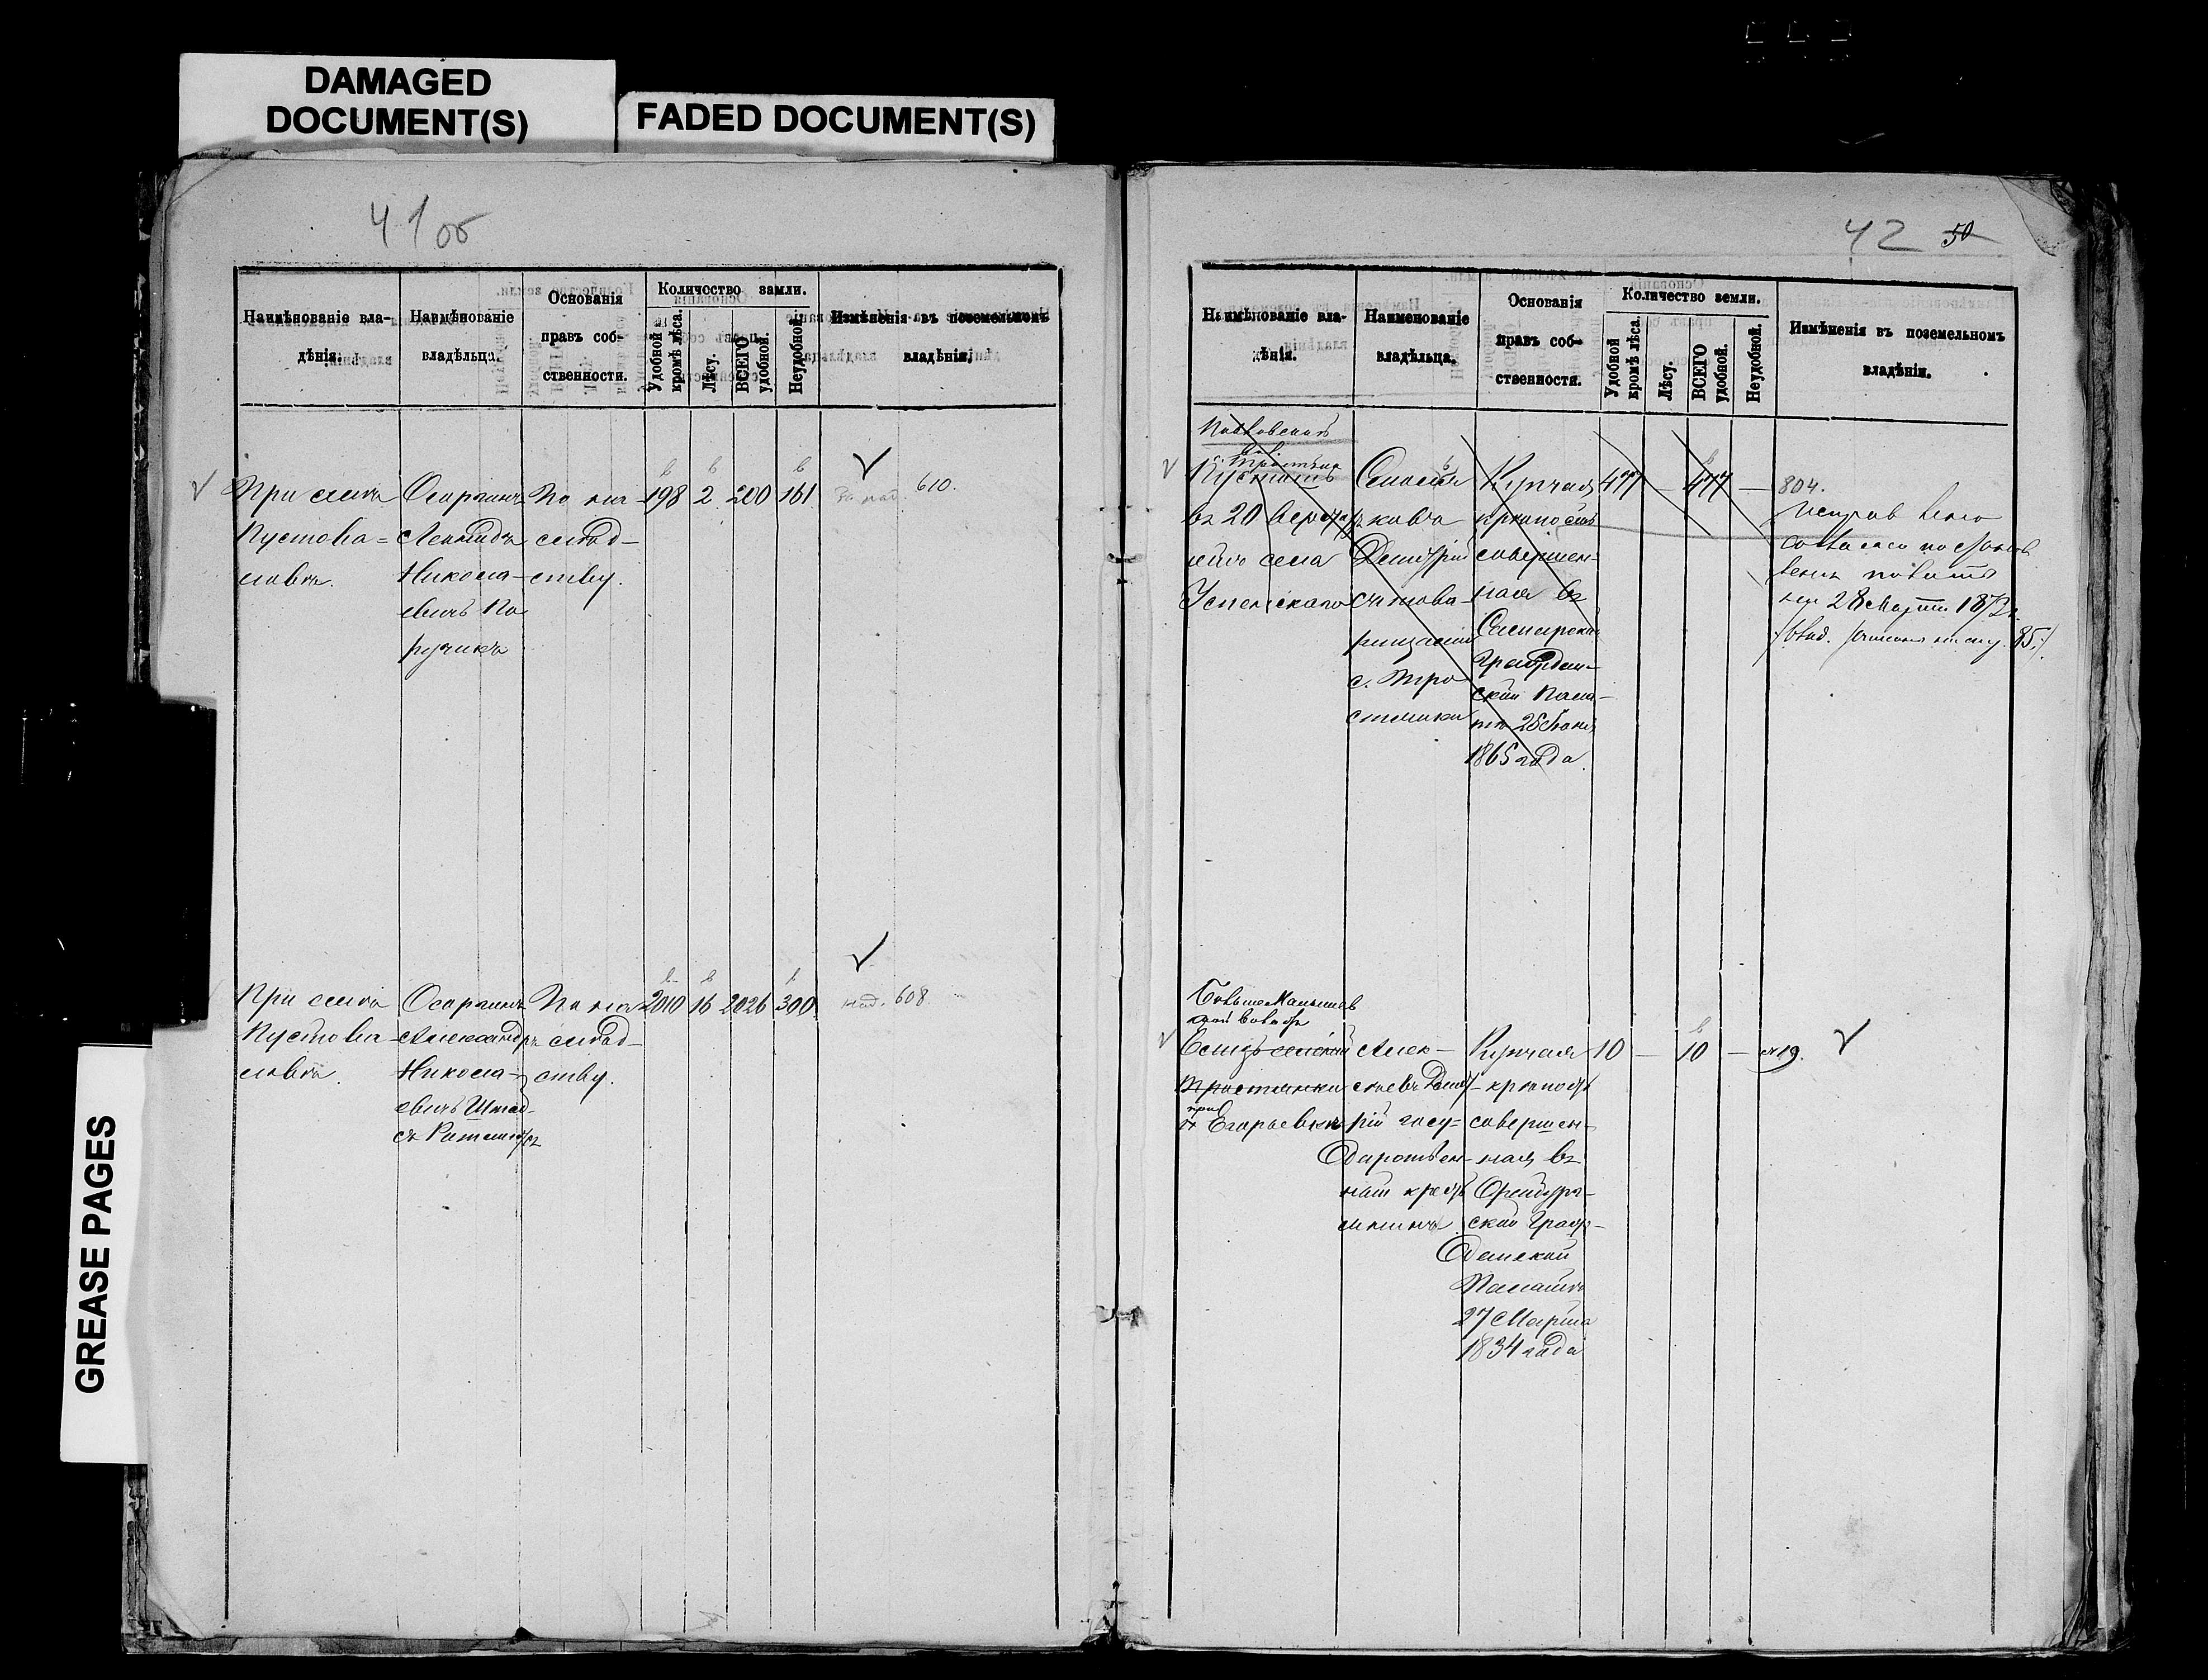 DAMAGED
DOCUMENT(S)
FADED DOCUMENT(S)
GREASE PAGES
41 об
Наимѣнованіе вла-
дѣнія.
Наимѣнованіе
владѣльца.
Основанія
правъ соб-
ственности.
Количество земли.
Удобной
кромѣ лѣса.
Лѣсу.
ВСЕГО
удобной.
Неудобной.
Измѣненія въ поземельномъ
владѣніи.
При селѣ
Пустова-
ловкѣ.
Осоргинъ
Леонидъ
Никола-
евичъ По
ручикъ
По на
слѣд-
ству.
198 2 200 161
610.
При селѣ
Пустова
ловкѣ.
Осоргинъ
Александръ
Никола-
евичъ Штаб-
съ Ротмистръ
По на
слѣд-
ству.
2010 16 2026 300
608.
42 50
Наимѣнованіе вла-
дѣнія.
Наименованіе
владѣльца.
Основанія
правъ соб-
ственности.
Количество земли.
Удобной
кромѣ лѣса.
Лѣсу.
ВСЕГО
удобной.
Неудобной.
Измѣненія въ поземельномъ
владѣніи.
Пустошь
въ 20 верстахъ
села
Успенскаго
Дмитрій
с. Тро
стянки
Купчая
крѣпость
совершен-
ная въ
Самарской
Граждан-
ской Пала-
тѣ 28 Іюня
1865 года.
477 — 477 —
804.
28 Марта 1872 г.
85.
Тростянки
при
Егорьевкѣ
Алек-
сѣевъ Дмит-
рій госу-
дарствен-
ный кресть
янинъ
Купчая
крѣпость
совершен-
ная въ
Оренбург-
ской Граж-
данской
Палатѣ
27 Марта
1834 года
10 — 10 —
№ 19.